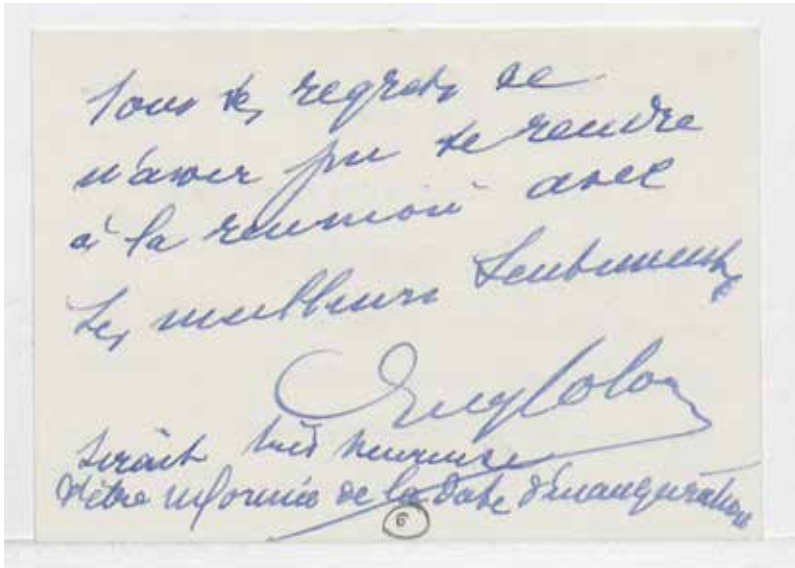 Tous ses regrets de
n'avoir pu se rendre
à la reunion avec
ses meilleurs sentiments
serait très heureuse
d'être informée de la date d'inauguration
6